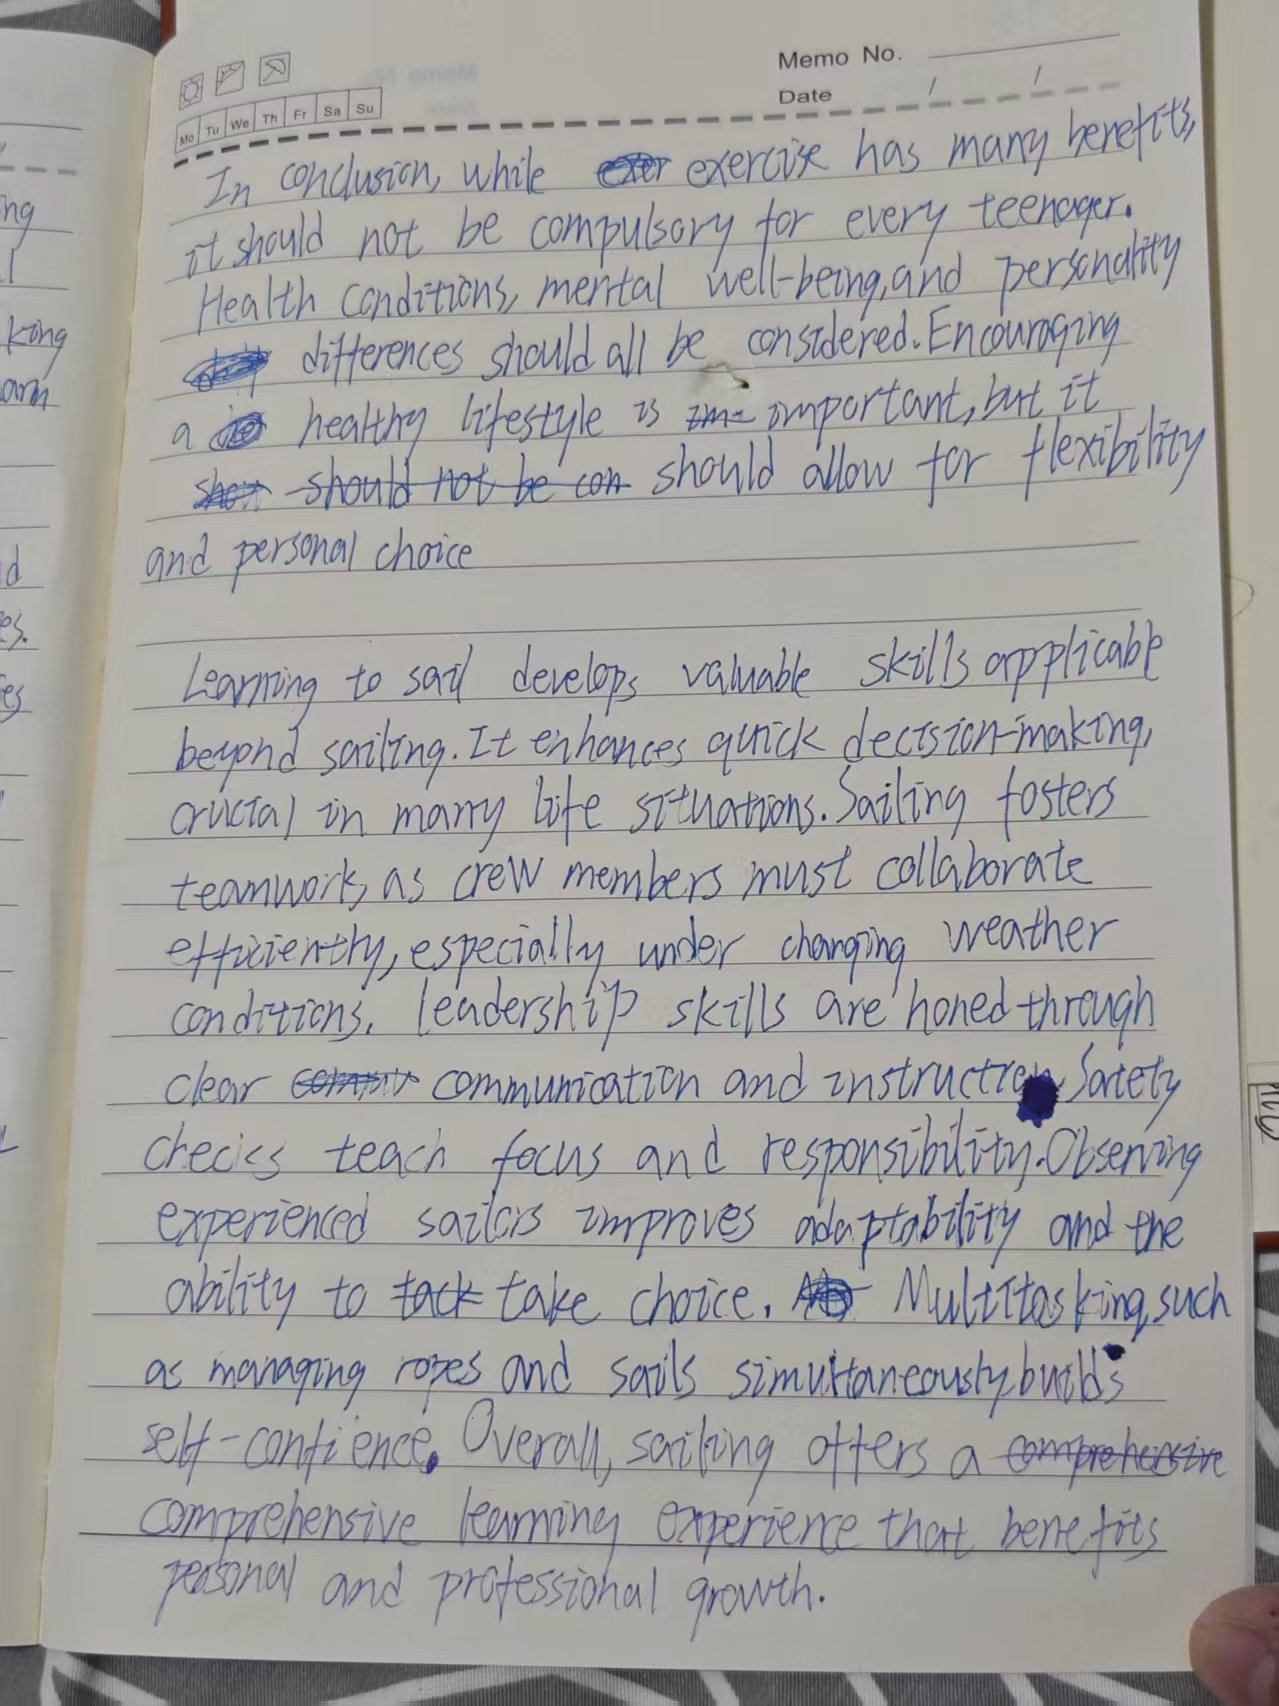 Memo No.
Date / /
Mo Tu We Th Fr Sa Su
In conclusion, while exercise has many benefits,
it should not be compulsory for every teenager.
Health conditions, mental well-being, and personality
differences should all be considered. Encouraging
a healthy lifestyle is important, but it
should not be con should allow for flexibility
and personal choice
Learning to sail develops valuable skills appplicable
beyond sailing. It enhances quick decision-making,
crucial in many life situations. Sailing fosters
teamwork, as crew members must collaborate
efficiently, especially under changing weather
conditions. leadership skills are honed through
clear communication and instruction. Safety
checks teach focus and responsibility. Observing
experienced sailors improves adaptability and the
ability to tack take choice. Multitasking, such
as managing ropes and sails simultaneously, builds
self-confience. Overall, sailing offers a comprehensive
comprehensive learning experience that benefits
personal and professional growth.
ing
king
arm
d
es.
es